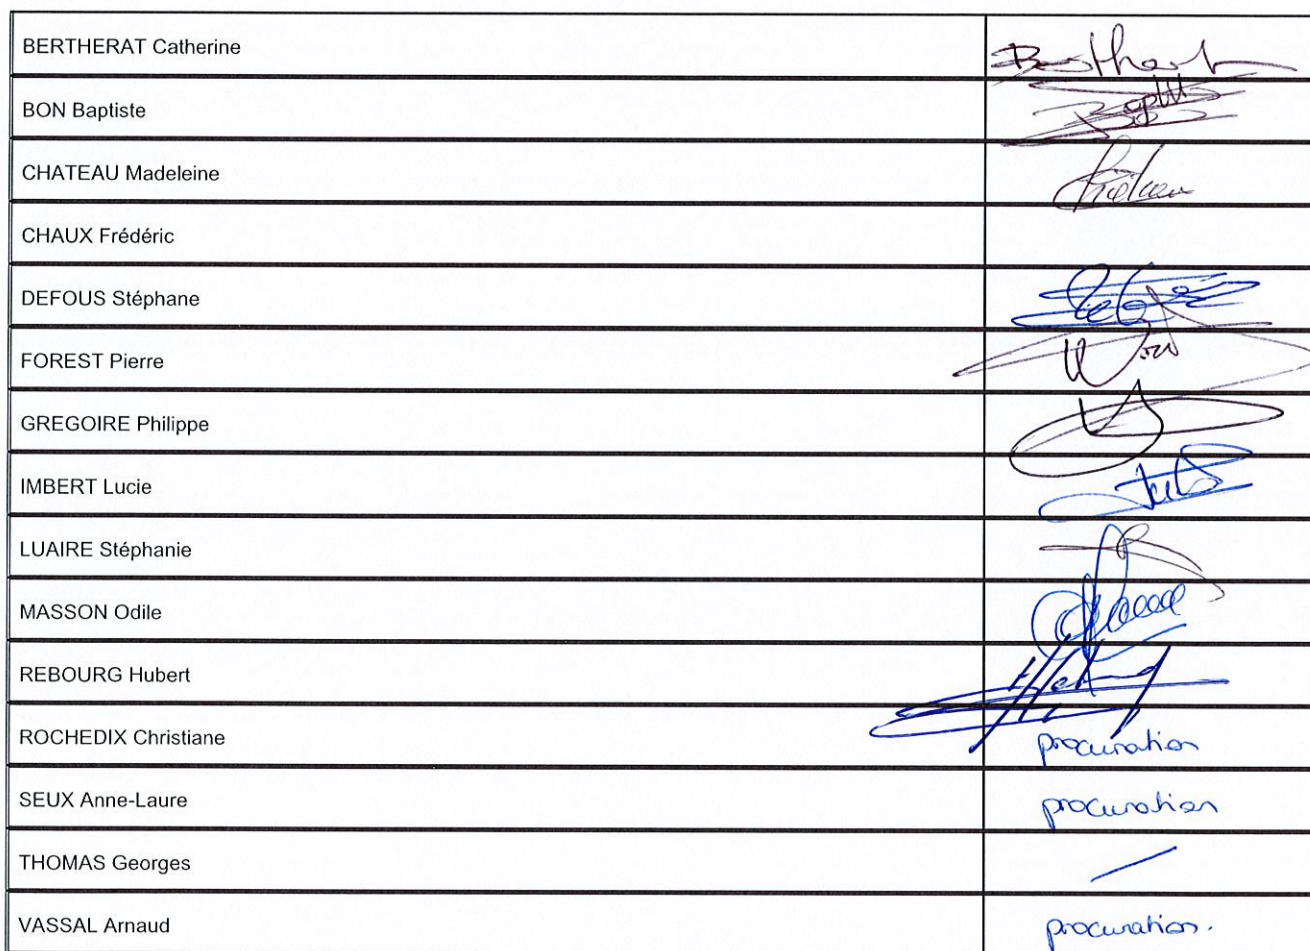 BERTHERAT Catherine
BON Baptiste
CHATEAU Madeleine
CHAUX Frédéric
DEFOUS Stéphane
FOREST Pierre
GREGOIRE Philippe
IMBERT Lucie
LUAIRE Stéphanie
MASSON Odile
REBOURG Hubert
ROCHEDIX Christiane procuration
SEUX Anne-Laure procuration
THOMAS Georges
VASSAL Arnaud procuration.